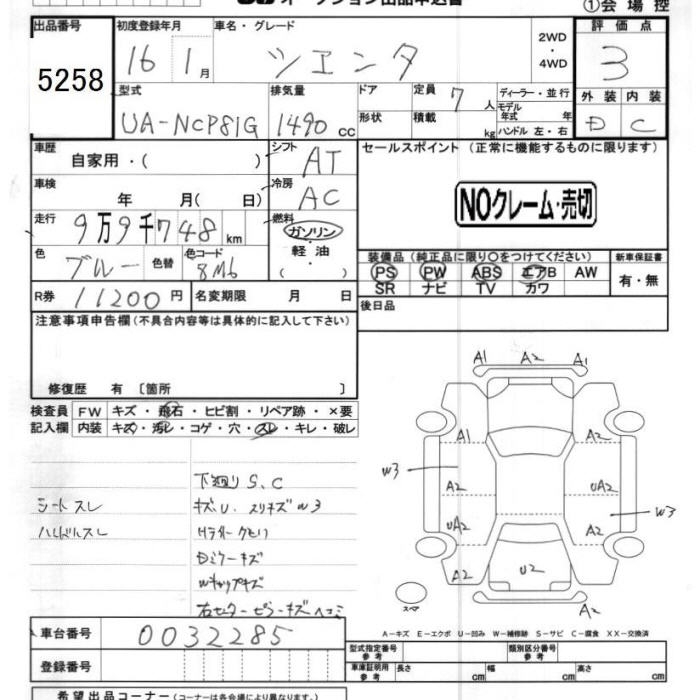 オークション出品申込書
①会場控
出品番号 初度登録年月 車名・グレード 2WD ・ 4WD 評価点
5258 16 1月 シエンタ 3
型式 排気量 ドア 定員 7人 ディーラー・並行 外装 内装
UA-NCP81G 1490cc 形状 積載 kg モデル年式 年 ハンドル 左・右 D C
車歴 自家用・( ) シフト AT セールスポイント (正常に機能するものに限ります)
車検 年 月( 日) 冷房 AC
NOクレーム・売切
走行 9万9千748km 燃料 ガソリン・軽油・( )
色 ブルー 色替 色コード 8M6
装備品(純正品に限り○をつけてください) 新車保証書
PS PW ABS エアB AW 有・無
SR ナビ TV カワ
R券 11200円 名変期限 月 日 後日品
注意事項申告欄(不具合内容等は具体的に記入して下さい)
修復歴 有 〔箇所 〕
検査員記入欄 FW キズ・飛石・ヒビ割・リペア跡・×要
内装 キズ・汚レ・コゲ・穴・スレ・キレ・破レ
下廻り S、C
シートスレ キズ、U、スリキズW3
ハンドルスレ Hライトクモリ
Dミラーキズ
Wキャップキズ
右センターピラーキズヘコミ
A1 A2 A1
A1 A2
W3 A2 UA2
UA2 A2 W3
A2 U2 A2
スペア A2
A-キズ E-エクボ U-凹み W-補修跡 S-サビ C-腐食 XX-交換済
車台番号 0032285
登録番号
型式指定番号 参考 類別区分番号 参考
車庫証明用 参考 長さ cm 幅 cm 高さ cm
希望出品コーナー(コーナーは各会場により異なります。)